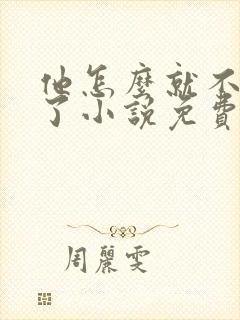 他怎麼就不
了小説免費
周麗雯